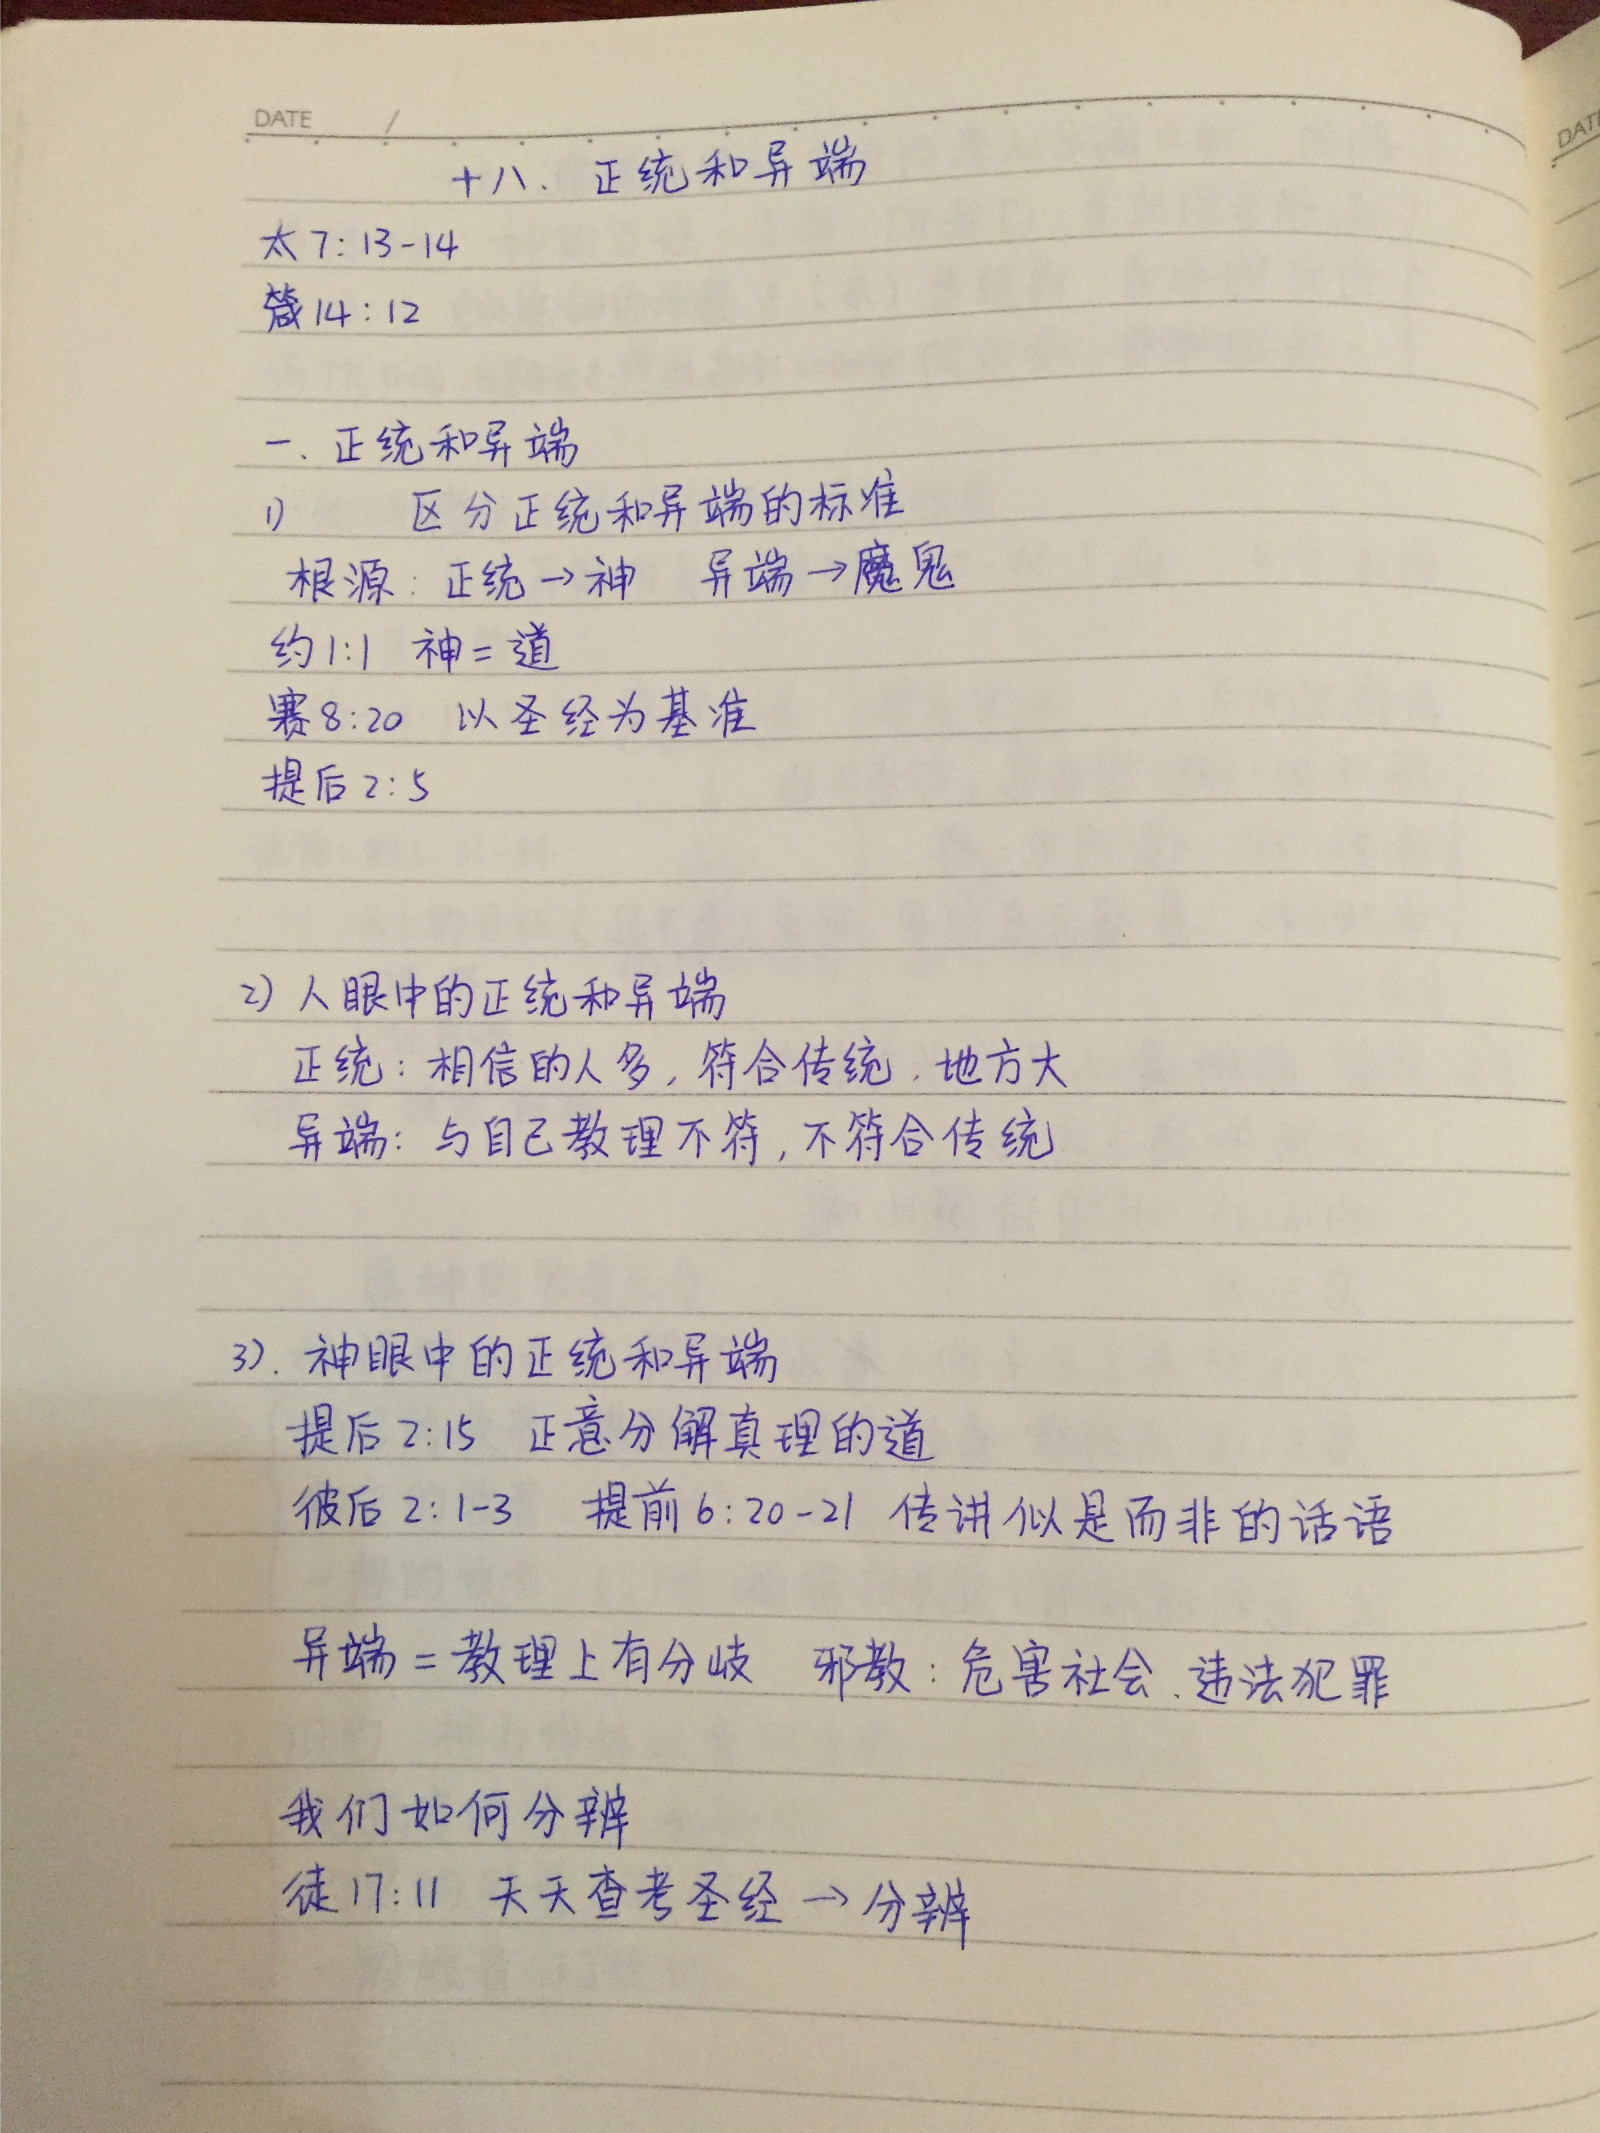 DATE /
十八. 正统和异端
太7:13-14
箴14:12
一. 正统和异端
1) 区分正统和异端的标准
根源: 正统→神 异端→魔鬼
约1:1 神=道
赛8:20 以圣经为基准
提后2:5
2) 人眼中的正统和异端
正统: 相信的人多, 符合传统. 地方大
异端: 与自己教理不符, 不符合传统
3). 神眼中的正统和异端
提后2:15 正意分解真理的道
彼后2:1-3 提前6:20-21 传讲似是而非的话语
异端=教理上有分歧 邪教: 危害社会、违法犯罪
我们如何分辨
徒17:11 天天查考圣经→分辨